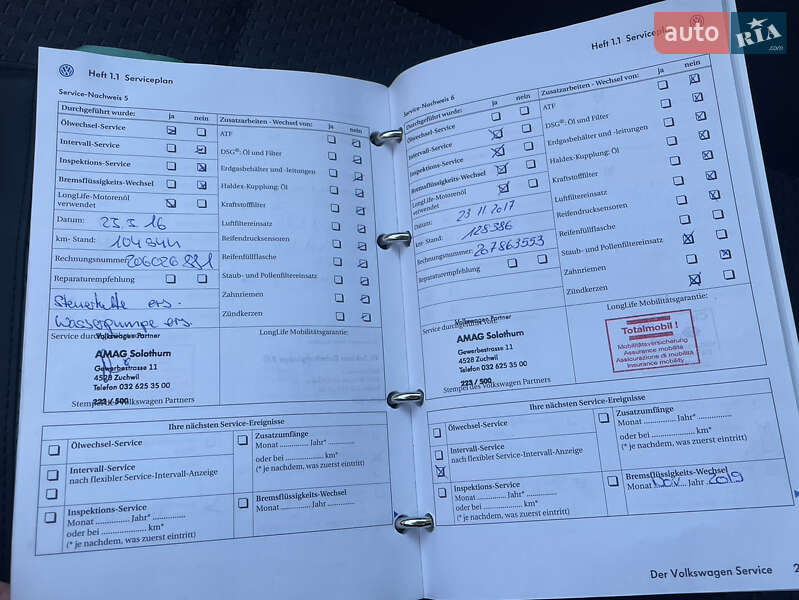 auto RIA.com
Heft 1.1 Serviceplan
Service-Nachweis 5
Durchgeführt wurde: ja nein
Zusatzarbeiten - Wechsel von: ja nein
Ölwechsel-Service
ATF
Intervall-Service
DSG®: Öl und Filter
Inspektions-Service
Erdgasbehälter und -leitungen
Bremsflüssigkeits-Wechsel
Haldex-Kupplung: Öl
LongLife-Motorenöl
verwendet
Kraftstofffilter
Datum: 23.5.16
Luftfiltereinsatz
km- Stand: 104844
Reifendrucksensoren
Rechnungsnummer: 206026881
Reifenfüllflasche
Reparaturempfehlung
Staub- und Pollenfiltereinsatz
Steuerkette ers.
Zahnriemen
Wasserpumpe ers.
Zündkerzen
Volkswagen Partner
Service durchgeführt
LongLife Mobilitätsgarantie:
AMAG Solothurn
Gewerbestrasse 11
4528 Zuchwil
Telefon 032 625 35 00
223 / 500
Stempel des Volkswagen Partners
Ihre nächsten Service-Ereignisse
Ölwechsel-Service
Zusatzumfänge
Monat ............ Jahr* ............
oder bei ............ km*
(* je nachdem, was zuerst eintritt)
Intervall-Service
nach flexibler Service-Intervall-Anzeige
Inspektions-Service
Monat ............ Jahr* ............
oder bei ............ km*
(* je nachdem, was zuerst eintritt)
Bremsflüssigkeits-Wechsel
Monat ............ Jahr ............
Heft 1.1 Serviceplan
Service-Nachweis 6
Durchgeführt wurde: ja nein
Zusatzarbeiten - Wechsel von: ja nein
Ölwechsel-Service
ATF
Intervall-Service
DSG®: Öl und Filter
Inspektions-Service
Erdgasbehälter und -leitungen
Bremsflüssigkeits-Wechsel
Haldex-Kupplung: Öl
LongLife-Motorenöl
verwendet
Kraftstofffilter
Datum: 23.11.2017
Luftfiltereinsatz
km- Stand: 128386
Reifendrucksensoren
Rechnungsnummer: 207863553
Reifenfüllflasche
Reparaturempfehlung
Staub- und Pollenfiltereinsatz
Zahnriemen
Zündkerzen
Volkswagen Partner
Service durchgeführt von:
LongLife Mobilitätsgarantie:
AMAG Solothurn
Gewerbestrasse 11
4528 Zuchwil
Telefon 032 625 35 00
223 / 500
Stempel des Volkswagen Partners
Totalmobil !
Mobilitätsversicherung
Assurance mobilité
Assicurazione di mobilità
Insurance mobility
Ihre nächsten Service-Ereignisse
Ölwechsel-Service
Zusatzumfänge
Monat ............ Jahr* ............
oder bei ............ km*
(* je nachdem, was zuerst eintritt)
Intervall-Service
nach flexibler Service-Intervall-Anzeige
Inspektions-Service
Monat ............ Jahr* ............
oder bei ............ km*
(* je nachdem, was zuerst eintritt)
Bremsflüssigkeits-Wechsel
Monat Nov. Jahr 2019
Der Volkswagen Service 2